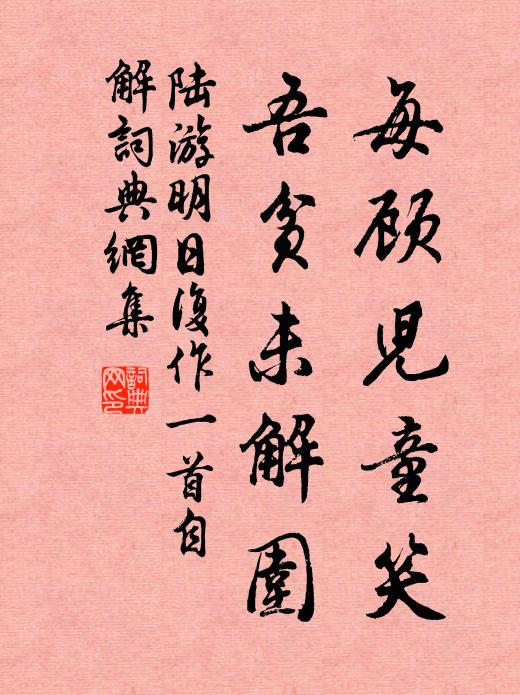 每顾儿童笑
吾贫未解围
陆游明日復作一首自
解詞典網集
詞典
网印